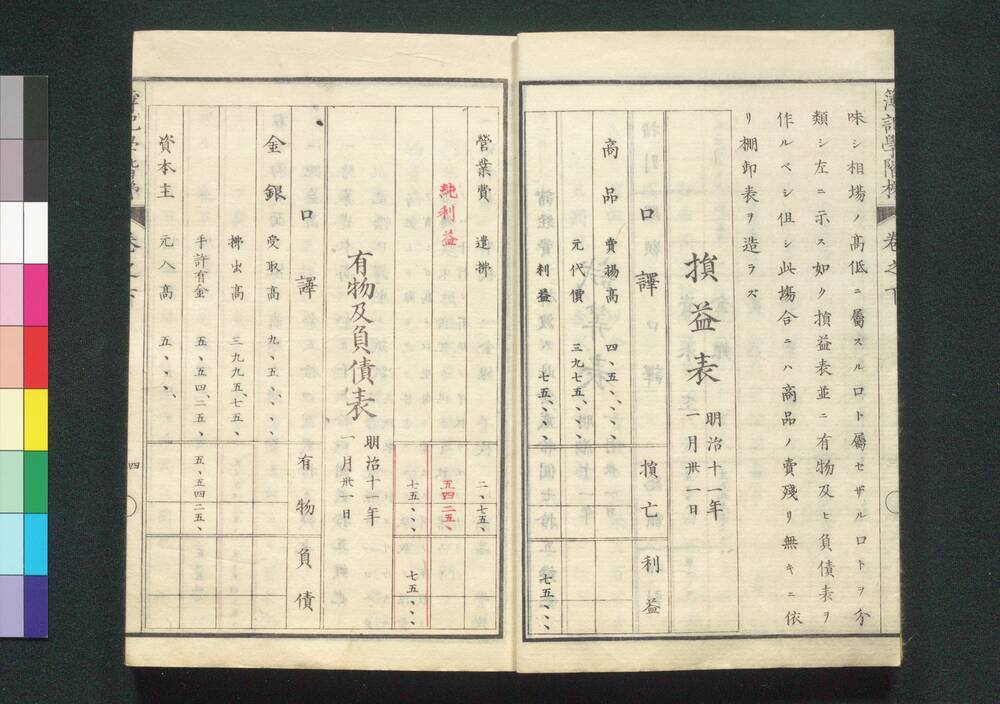 味シ相場ノ高低ニ屬スルロト屬セザルロトヲ分
類シ左ニ示ス如ク損益表並ニ有物及ヒ負債表ヲ
作ルベシ但シ此塲合ニハ商品ノ賣殘リ無キニ依
リ棚卸表ヲ造ラズ
損益表
明治十一年
一月卅一日
口譯
損亡
利益
商品
賣揚高
四、五、、、、
元代價
三九七五、、、
利益
七五、、、
七五、、、
營業費
遣拂
二、七五、、
純利益
五四二五、、
七五、、、
七五、、、
有物及負債表
明治十一年
一月卅一日
口譯
有物
負債
金銀
受取高
九、五、、、、
拂出高
三九九五、七五、、
手許有金
五、五四、二五、、
五、五四二五、、
資本主
元入高
五、、、、、
卷之下
四